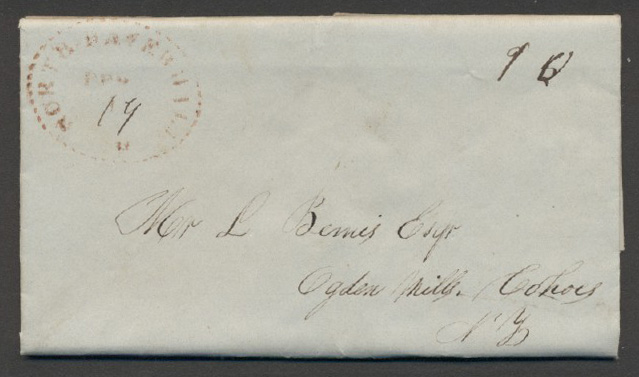 NORTH HAVERHILL
19
10
Mr L Bemis Esqr
Ogden Mills. Cohoes
N.Y